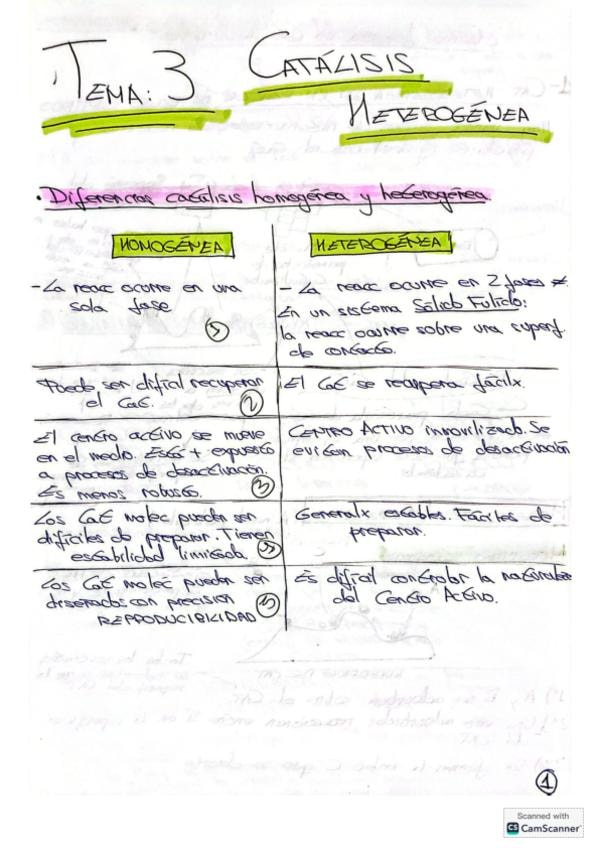 TEMA: 3 CATÁLISIS
HETEROGÉNEA
• Diferencias catálisis homogénea y heterogénea
HOMOGÉNEA
HETEROGÉNEA
- La reacc ocurre en una
sola fase
- La reacc ocurre en 2 fases ≠
En un sistema Sólido Fulido:
la reacc ocurre sobre una superf.
de contacto.
Puede ser difícil recuperar
el Cat.
El Cat se recupera fácilx.
El centro activo se mueve
en el medio. Está + expuesto
a procesos de desactivación.
Es menos robusto.
CENTRO ACTIVO inmovilizado. Se
evitan procesos de desactivación
Los Cat molec pueden ser
difíciles de preparar. Tienen
estabilidad limitada.
Generalx estables. Fáciles de
preparar.
Los Cat molec pueden ser
diseñados con precisión
REPRODUCIBILIDAD
Es difícil controlar la naturaleza
del Centro Activo.
1
Scanned with
CS CamScanner